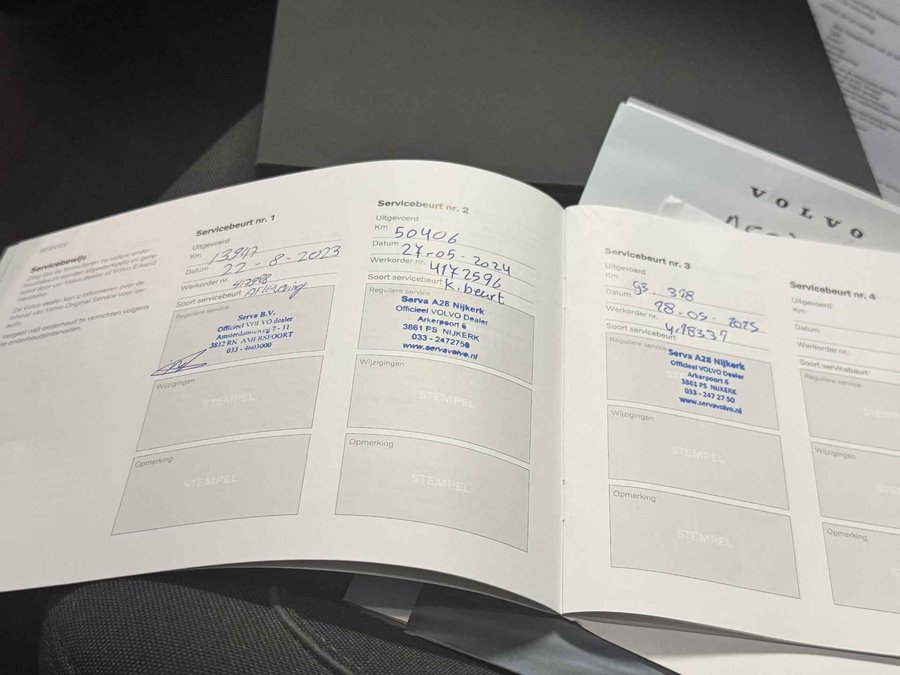 SERVICE
Servicebewijs
De Volvo dealer kan u informeren over de
inhoud van Volvo Original Service voor uw
auto.
Vergeet niet onderhoud te verrichten volgens
de onderhoudsintervallen.
Servicebeurt nr. 1
Uitgevoerd
Km
Datum 22-8-2023
Werkorder nr.
Soort servicebeurt
Reguliere service
Serva B.V.
Officieel VOLVO dealer
Amsterdamseweg 7 - 11
3812 RK AMERSFOORT
033 - 4603000
Wijzigingen
STEMPEL
Opmerking
STEMPEL
Servicebeurt nr. 2
Uitgevoerd
Km 50406
Datum 27-05-2024
Werkorder nr. 4172596
Soort servicebeurt K.beurt
Reguliere service
Serva A28 Nijkerk
Officieel VOLVO Dealer
Arkerpoort 6
3861 PS NIJKERK
033 - 2472750
www.servavolvo.nl
Wijzigingen
STEMPEL
Opmerking
STEMPEL
Servicebeurt nr. 3
Uitgevoerd
Km 93 378
Datum 28-05-2025
Werkorder nr. 418337
Soort servicebeurt
Reguliere service
Serva A28 Nijkerk
Officieel VOLVO Dealer
Arkerpoort 6
3861 PS NIJKERK
033 - 247 27 50
www.servavolvo.nl
Wijzigingen
STEMPEL
Opmerking
STEMPEL
Servicebeurt nr. 4
Uitgevoerd
Km
Datum
Werkorder nr.
Soort servicebeurt
Reguliere service
Wijzigingen
Opmerking
VOLVO